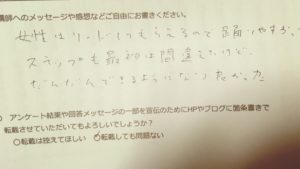 講師へのメッセージや感想などご自由にお書きください。
女性はリードしてもらえるので踊りやすい。
ステップも最初は間違えたけど、
だんだんできるようになりました。
アンケート結果や回答メッセージの一部を宣伝のためにHPやブログに箇条書きで
転載させていただいてもよろしいでしょうか?
○転載は控えてほしい ○転載しても問題ない